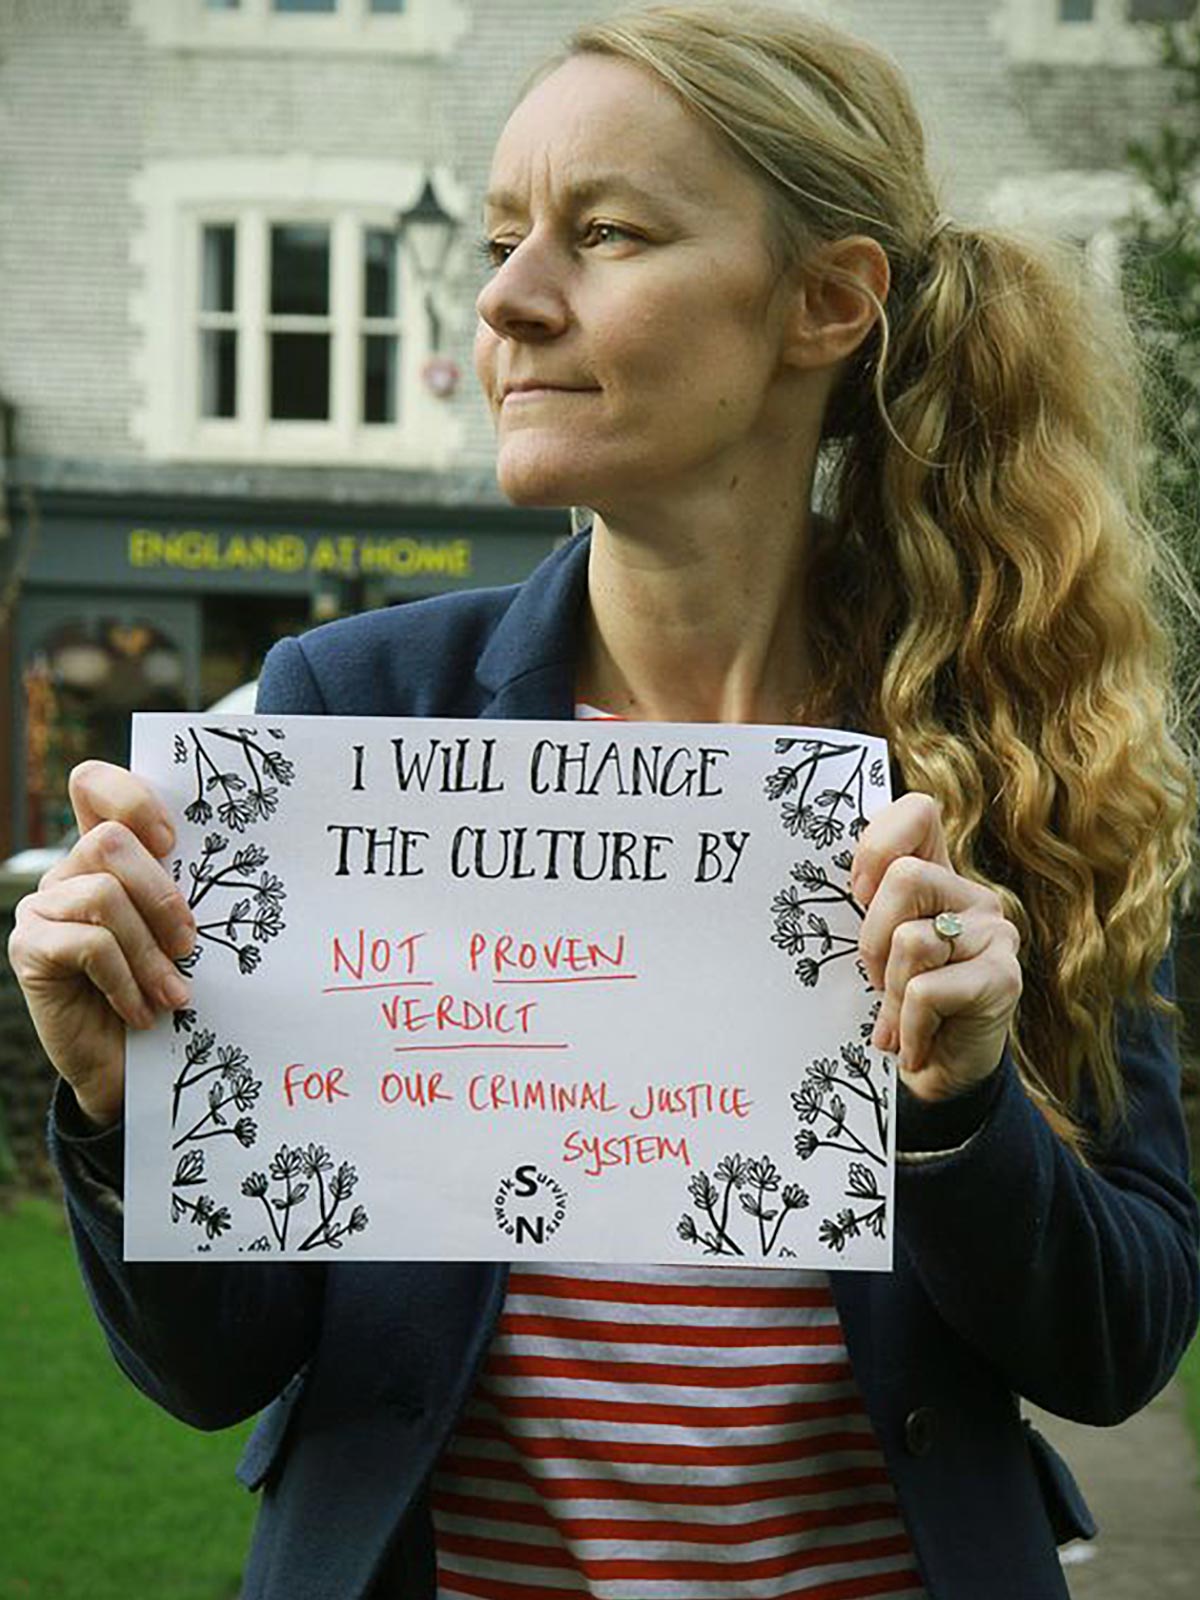 ENGLAND AT HOME
I WILL CHANGE
THE CULTURE BY
NOT PROVEN
VERDICT
FOR OUR CRIMINAL JUSTICE
SYSTEM
Survivors'
Network